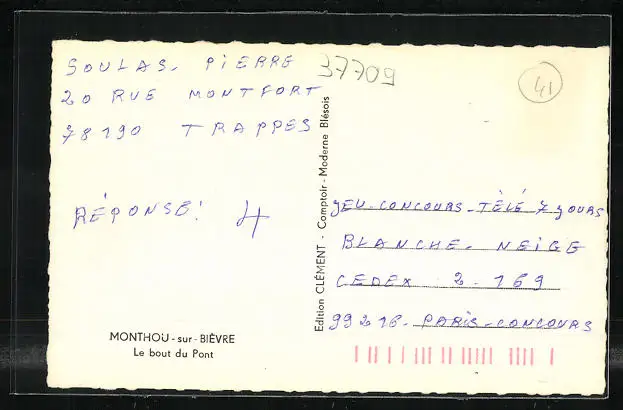 SOULAS. PIERRE
20 RUE MONTFORT
78190 TRAPPES
RÉPONSE! 4
MONTHOU-sur-BIÈVRE
Le bout du Pont
Edition CLÉMENT - Comptoir-Moderne Blésois
37709
41
JEU-CONCOURS-TÉLÉ 7 JOURS
BLANCHE. NEIGE
CEDEX 2-169
99216. PARIS-CONCOURS